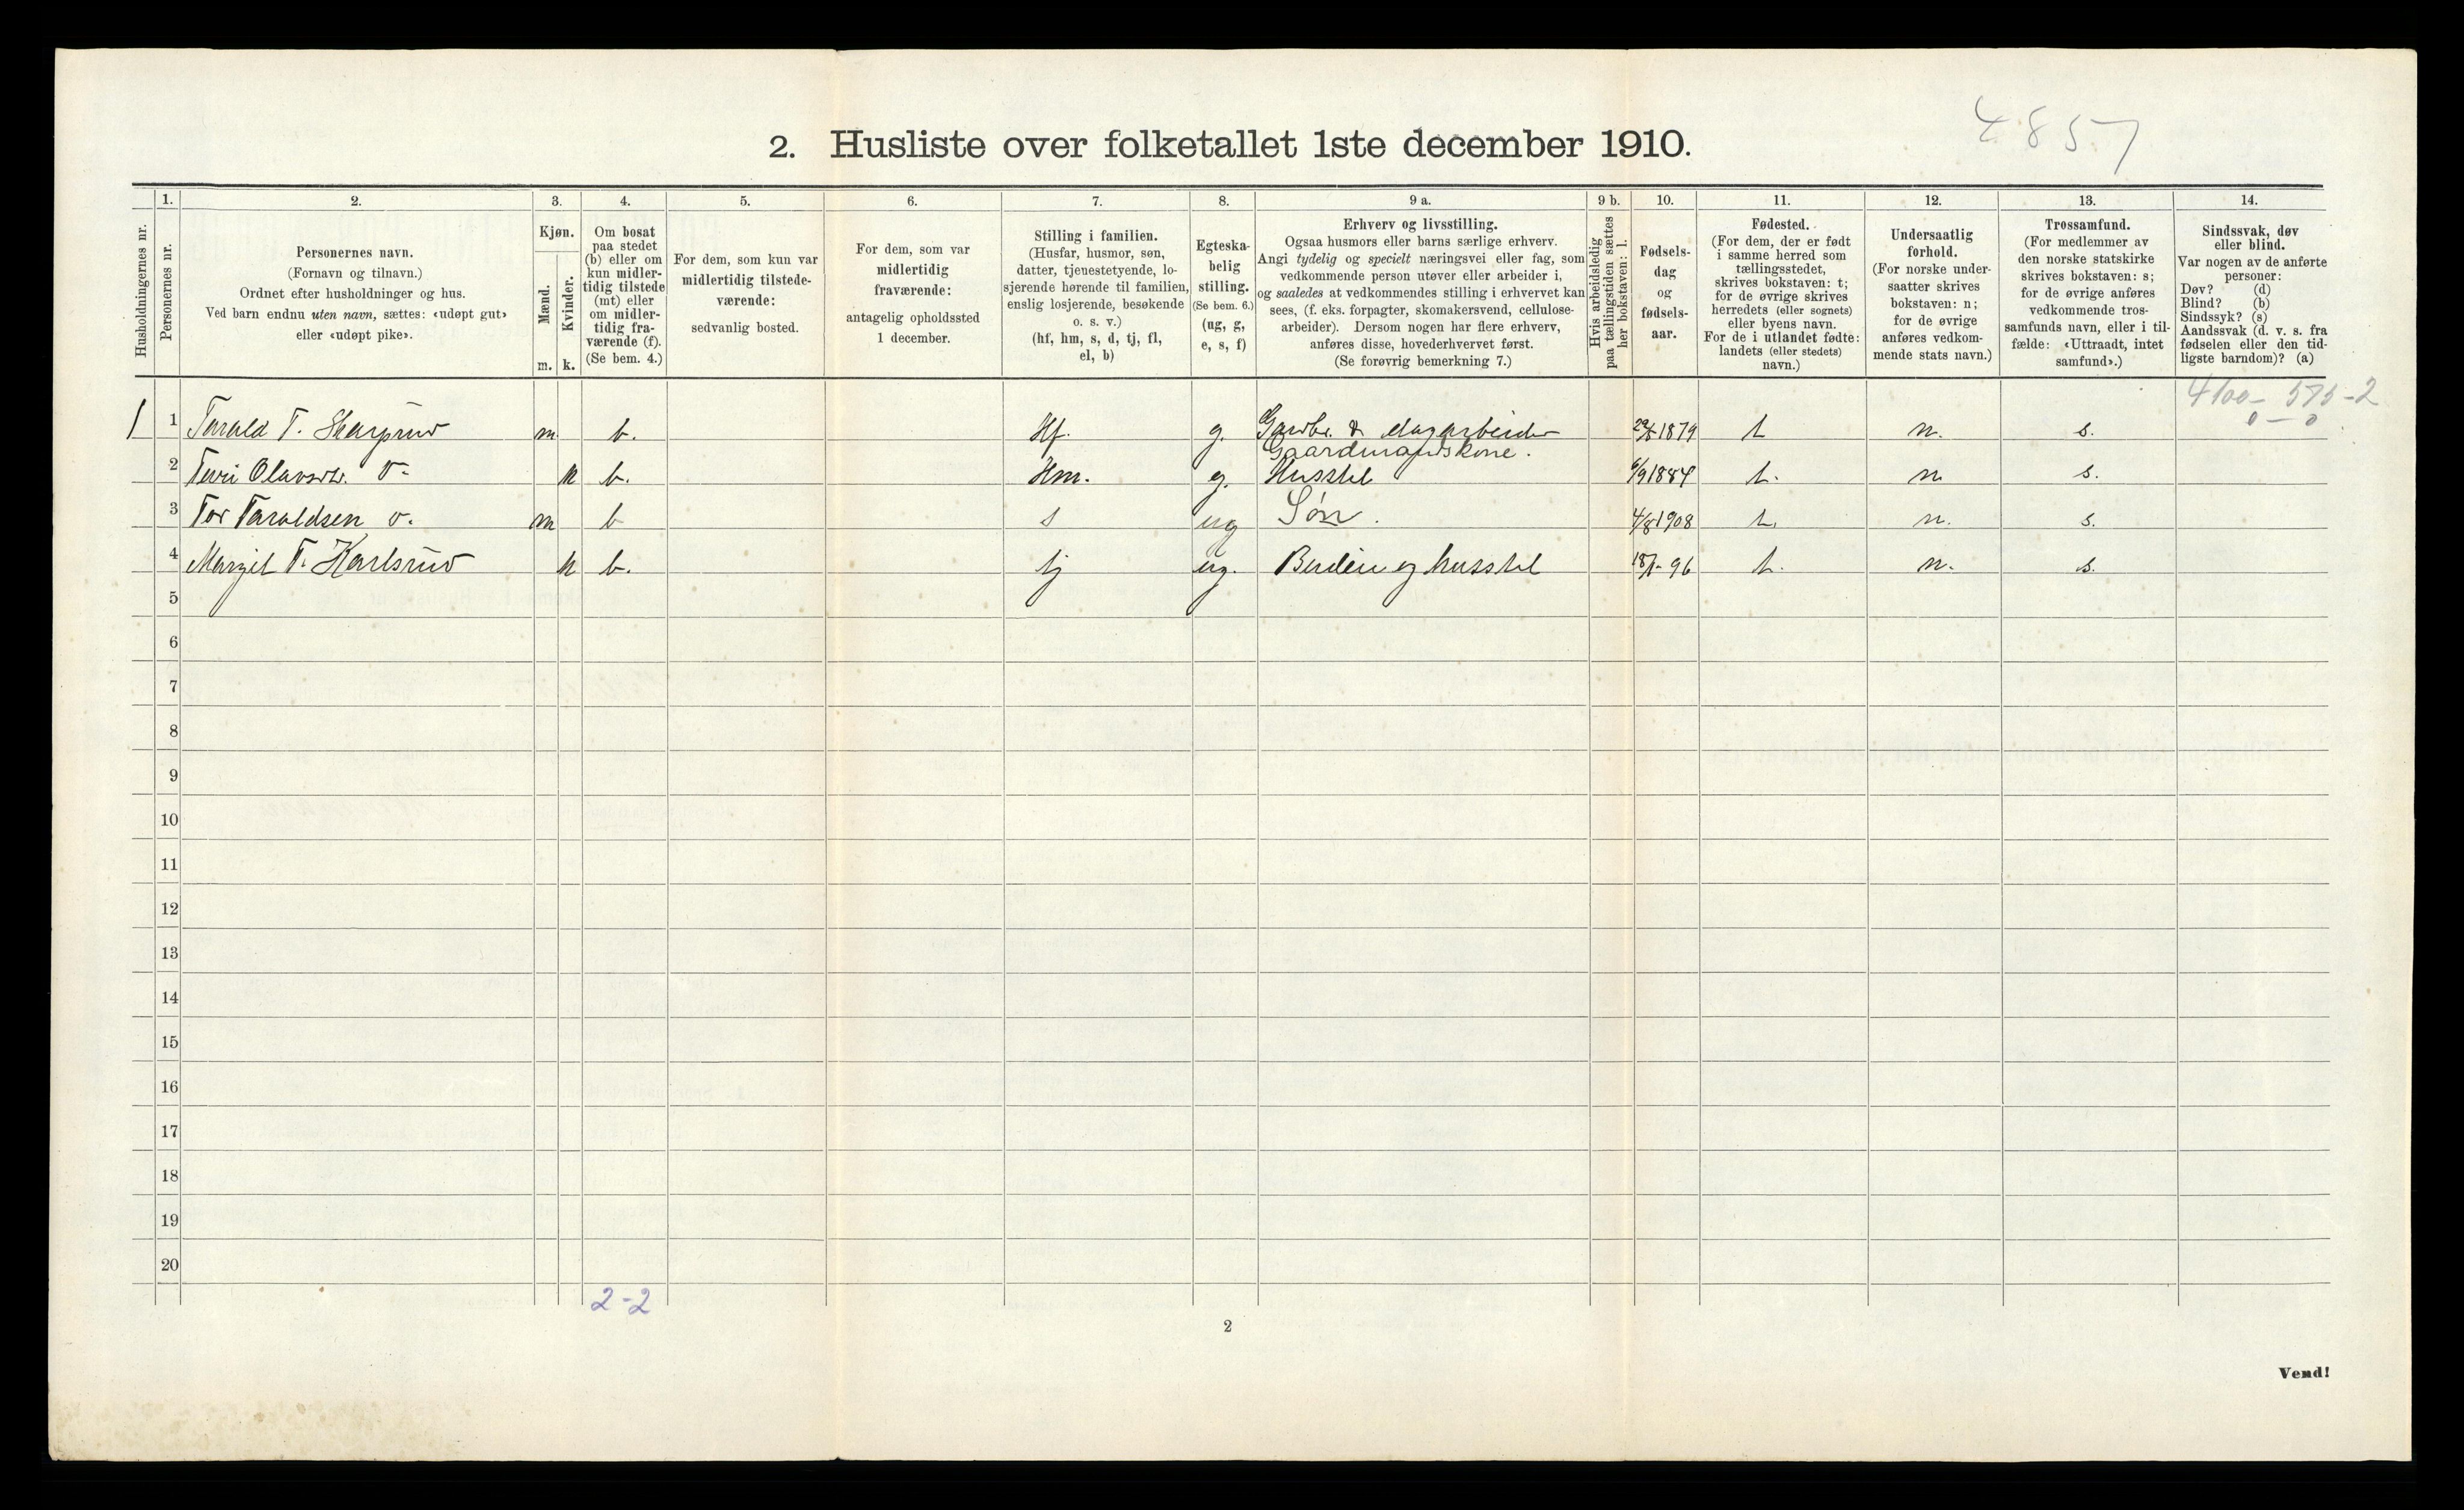 4857
2. Husliste over folketallet 1ste december 1910.
Husholdningernes nr.
1.
Personernes nr.
2.
Personernes navn.
(Fornavn og tilnavn.)
Ordnet efter husholdninger og hus.
Ved barn endnu uten navn, sættes: «udøpt gut»
eller «udøpt pike».
3.
Kjøn.
Mænd.
Kvinder.
m. k.
4.
Om bosat
paa stedet
(b) eller om
kun midler-
tidig tilstede
(mt) eller
om midler-
tidig fra-
værende (f).
(Se bem. 4.)
5.
For dem, som kun var
midlertidig tilstede-
værende:
sedvanlig bosted.
6.
For dem, som var
midlertidig
fraværende:
antagelig opholdssted
1 december.
7.
Stilling i familien.
(Husfar, husmor, søn,
datter, tjenestetyende, lo-
sjerende hørende til familien,
enslig losjerende, besøkende
o. s. v.)
(hf, hm, s, d, tj, fl,
el, b)
8.
Egteska-
belig
stilling.
(Se bem. 6.)
(ug, g,
e, s, f)
9 a.
Erhverv og livsstilling.
Ogsaa husmors eller barns særlige erhverv.
Angi tydelig og specielt næringsvei eller fag, som
vedkommende person utøver eller arbeider i,
og saaledes at vedkommendes stilling i erhvervet kan
sees, (f. eks. forpagter, skomakersvend, cellulose-
arbeider). Dersom nogen har flere erhverv,
anføres disse, hovederhvervet først.
(Se forøvrig bemerkning 7.)
9 b.
Hvis arbeidsledig
paa tællingstiden sættes
her bokstaven: l.
10.
Fødsels-
dag
og
fødsels-
aar.
11.
Fødested.
(For dem, der er født
i samme herred som
tællingsstedet,
skrives bokstaven: t;
for de øvrige skrives
herredets (eller sognets)
eller byens navn.
For de i utlandet fødte:
landets (eller stedets)
navn.)
12.
Undersaatlig
forhold.
(For norske under-
saatter skrives
bokstaven: n;
for de øvrige
anføres vedkom-
mende stats navn.)
13.
Trossamfund.
(For medlemmer av
den norske statskirke
skrives bokstaven: s;
for de øvrige anføres
vedkommende tros-
samfunds navn, eller i til-
fælde: «Uttraadt, intet
samfund».)
14.
Sindssvak, døv
eller blind.
Var nogen av de anførte
personer:
Døv? (d)
Blind? (b)
Sindssyk? (s)
Aandssvak (d. v. s. fra
fødselen eller den tid-
ligste barndom)? (a)
4100 - 575 - 2
0 - 0
1 1 Tarald T. m. b. Hf. g. Gaardbr. & dagarbeider 1879 t n. s.
Gaardmandskone.
2 Turi Olavsdtr. k b. Hm. g. Husstel 6/9 1884 t. n s.
3 Tor Taraldsen m b s ug Søn. 4/8 1908 t. n. s.
4 Margit T. Karlsrud k b. tj ug. Budeie og husstel 96 t. n. s.
5
6
7
8
9
10
11
12
13
14
15
16
17
18
19
20
2-2
2
Vend!